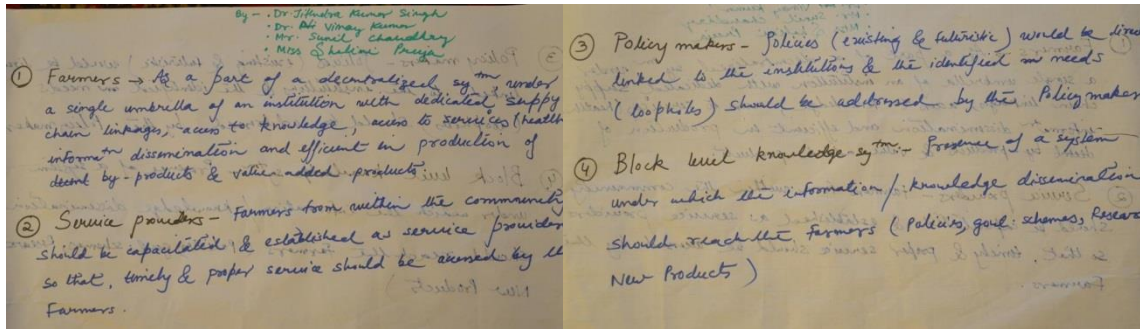 By - • Dr. Jitendra Kumar Singh
• Dr. Vinay Kumar
• Mr. Sunil Chaudhary
• Miss Shalini
① Farmers → As a part of a decentralized sytm under
a single umbrella of an institution with dedicated supply
chain linkages, access to knowledge, access to services (health
informatn dissemination and efficient in production of
decent by-products & value added products
② Service providers - Farmers from within the community
should be capacitated & established as service provider
so that, timely & proper service should be accessed by the
Farmers.
③ Policy makers - Policies (existing & futuristic) would be
linked to the institutions & the identified needs
(loopholes) should be addressed by the Policy maker
④ Block level knowledge sytm - Presence of a system
under which the information / knowledge dissemination
should reach the farmers (Policies, govt. schemes, Resear
New Products)